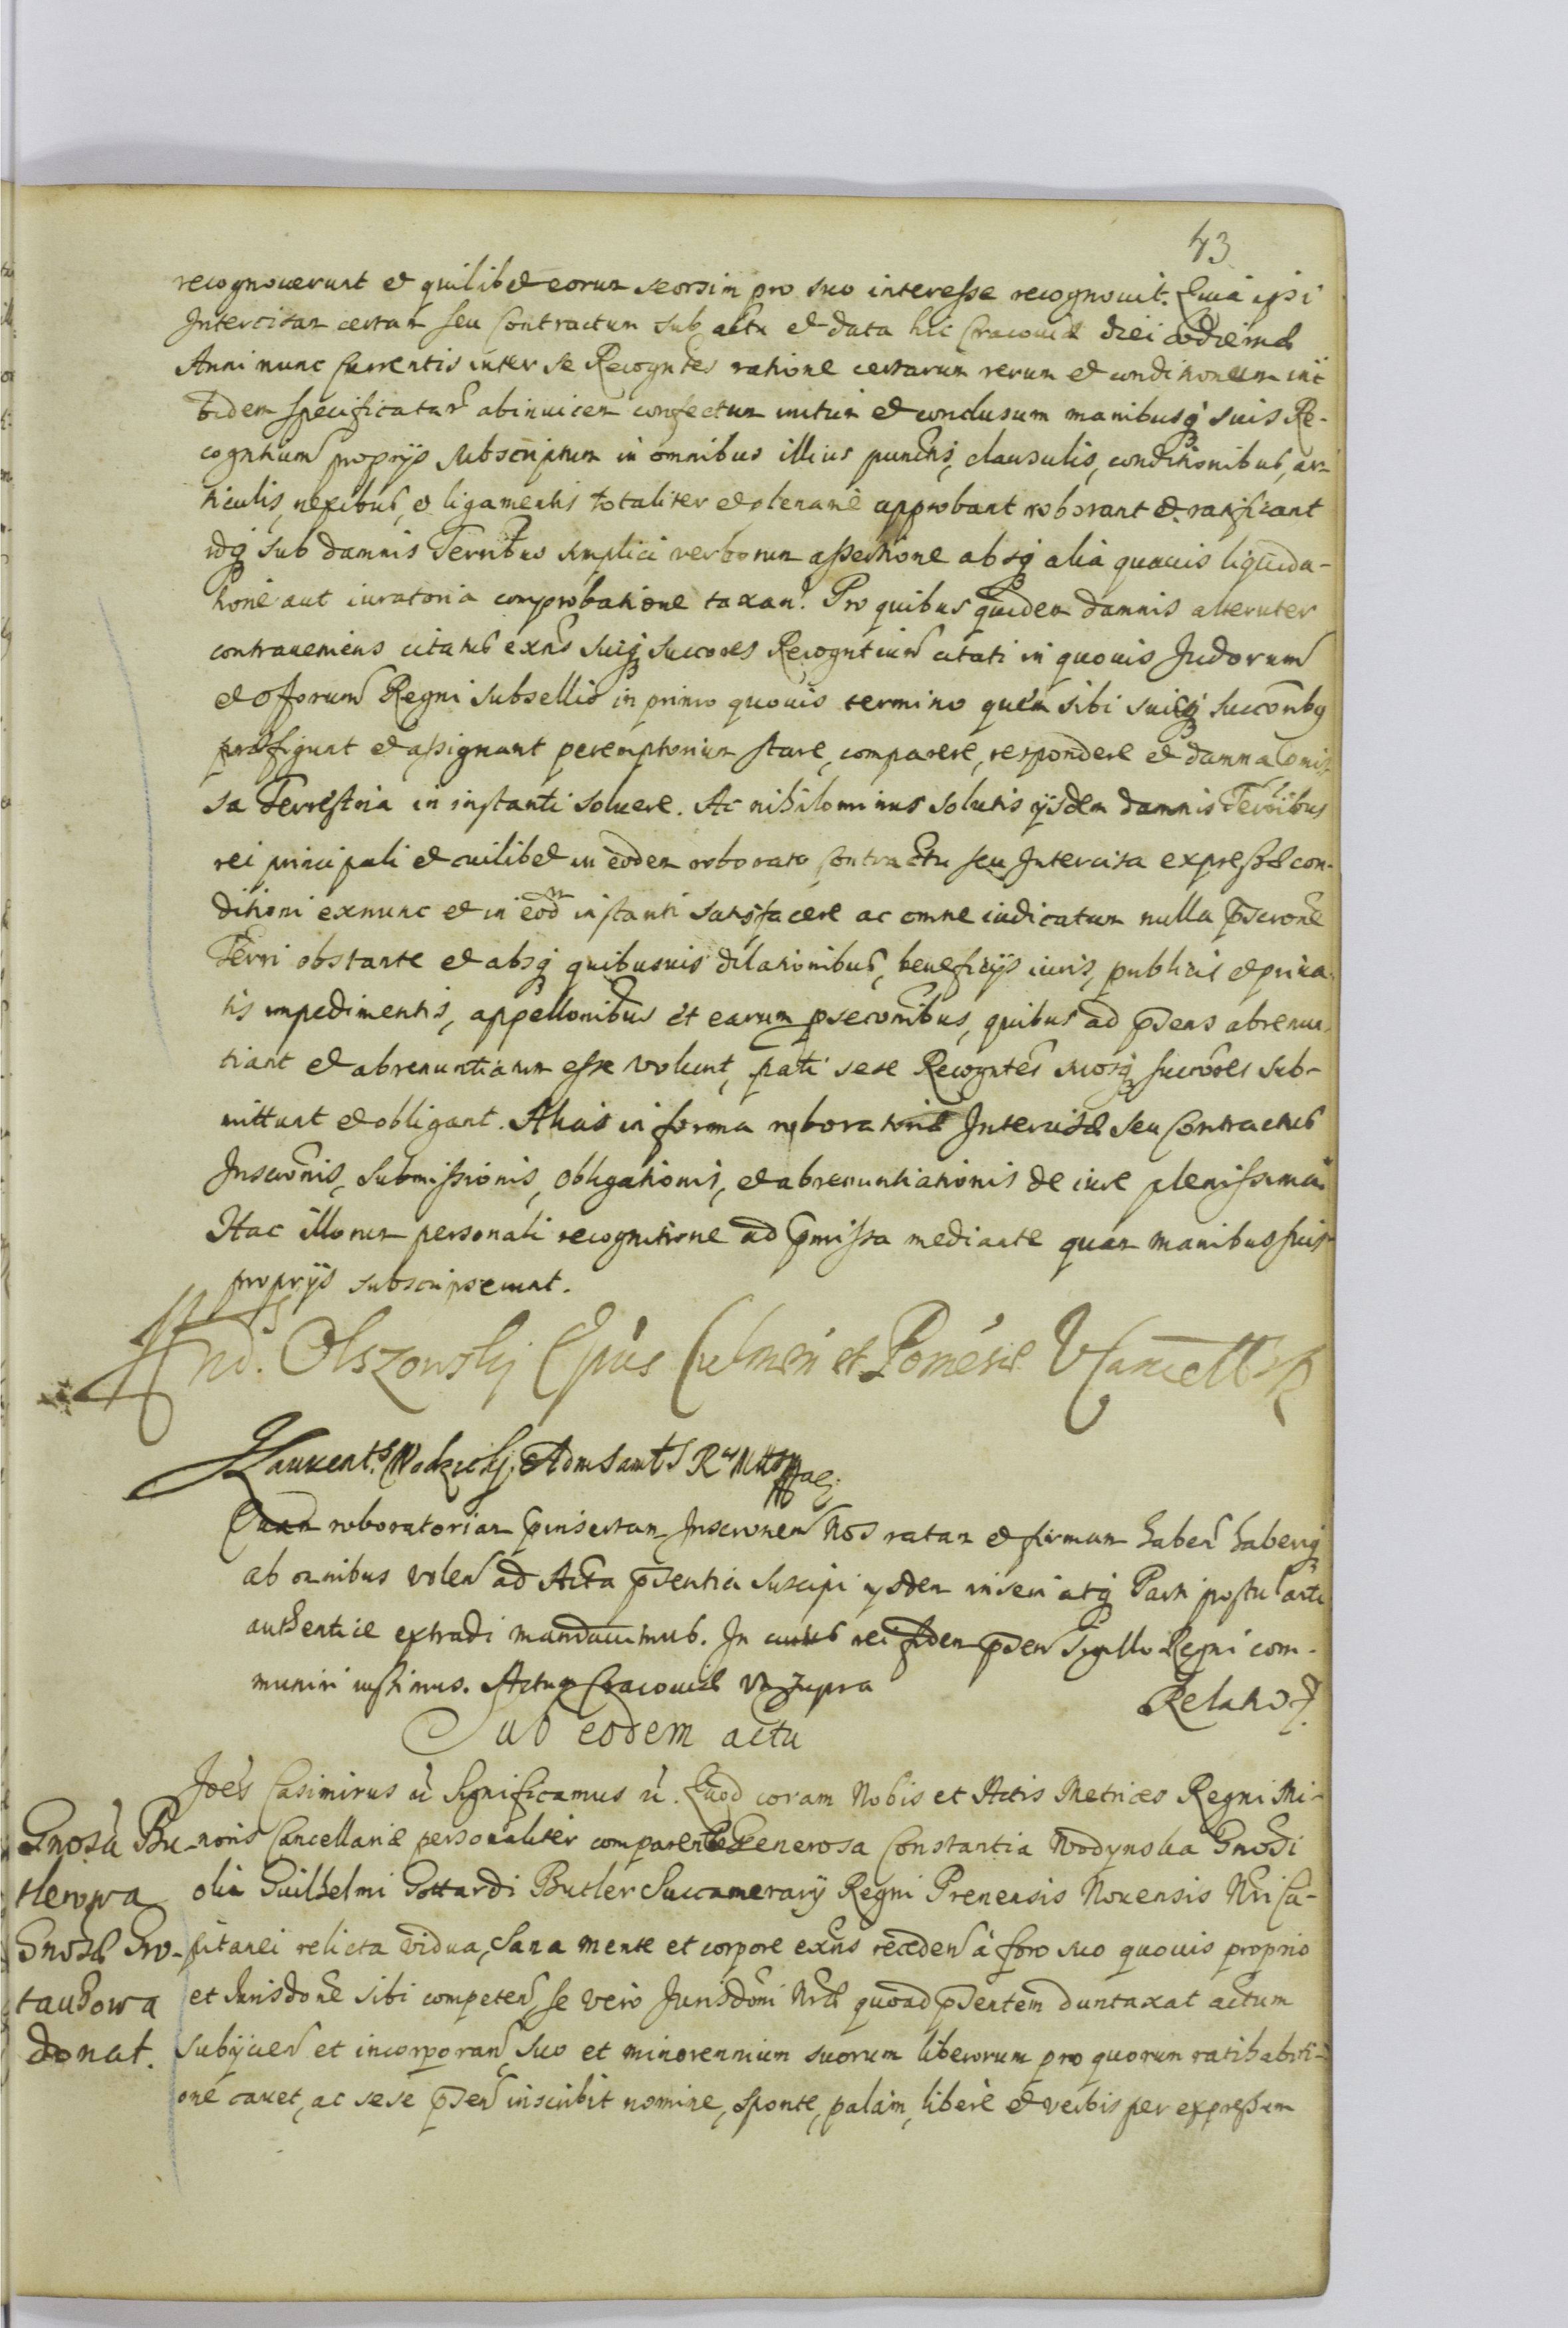 43
recognoverunt et quilibet eorum seorsim pro suo interesse recognovit. Quia ipsi
Intercisam certam seu Contractum sub actu et data hic Cracoviæ diei hodiernæ
Anni nunc currentis inter se Recogntes ratione certarum rerum et conditionum ini
bidem specificatar abinvicem confectum initum et conclusum manibusq suis Re-
cogntium proprijs subscriptum in omnibus illius punctis, clausulis, conditionibus, ar-
ticulis, nexibus, et ligamentis totaliter et plenarie approbant roborant et ratificant
idq sub damnis Terribus simplici verborum assertione absq alia quavis liquida-
tione aut iuratoria comprobatione taxan. Pro quibus quidem damnis alteruter
contraveniens citatus exns suiq succores Recogntium citati in quovis Judiorum
et offorum Regni subsellio in primo quovis termino quem sibi suisq succoribus
præfigunt et assignant peremptorium stare, comparere, respondere et damna comis
sa Terrestria in instanti solvere. Ac nihilominus solutis ijsdem damnis Terribus
rei principali et cuilibet in eodem roborato Contractu seu Intercisa expressæ con-
ditioni exnunc et in eod instanti satisfacere ac omne iudicatum nulla pscrone
Terri obstante et absq quibusvis dilationibus, beneficijs iuris, publicis et priva-
tis impedimentis, appellonibus et earum psecconibus, quibus ad psens abrenun-
tiant et abrenuntiatum esse volunt, pati sese Recogntes suosq succores sub-
mittunt et obligant. Alias in forma roboratoriæ Intercisæ seu Contractus
Inscronis, Submissionis, Obligationis, et abrenuntiationis de iure plenissima
Hac illorum personali recognitione ad pmissa mediante quam manibus suis
proprijs subscripserunt.
And. Olszowskj Epus Culmen et Pomesæ VCancell R
Laurent. Wodzickj
Quam roboratoriam pinsertam Inscronem Nos ratam et firmam haben haberiq
ab omnibus volen ad Acta psentia suscipi ijsdem inseri atq Parti postulanti
authentice extradi mandavimus. In cuius rei fidem psen Sigillo Regni com-
muniri iussimus. Actum Cracoviæ ut supra
Relatio
Sub eodem actu
Joes Casimirus Significamus Quod coram Nobis et Actis Metrices Regni Mi-
noris Cancellariæ personaliter comparens Generosa Constantia Wodynska Gnosi
olim Guilhelmi Gottardi Butler Succamerarij Regni Prenensis Novensis Nri Ca-
pitanei relicta vidua, sana mente et corpore exns receden à foro suo quovis proprio
et Iurisdone sibi competen, se vero Jurisdoni Nræ quoad psentem duntaxat actum
subijcien et incorporan, suo et minorennium suorum liberorum pro quorum ratihabiti-
one cavet, ac sese psen inscribit nomine, sponte, palam, libere et verbis per expressum
Gnosa Bu-
tlerowa
Gnosæ Gro-
tauzowa
donat.